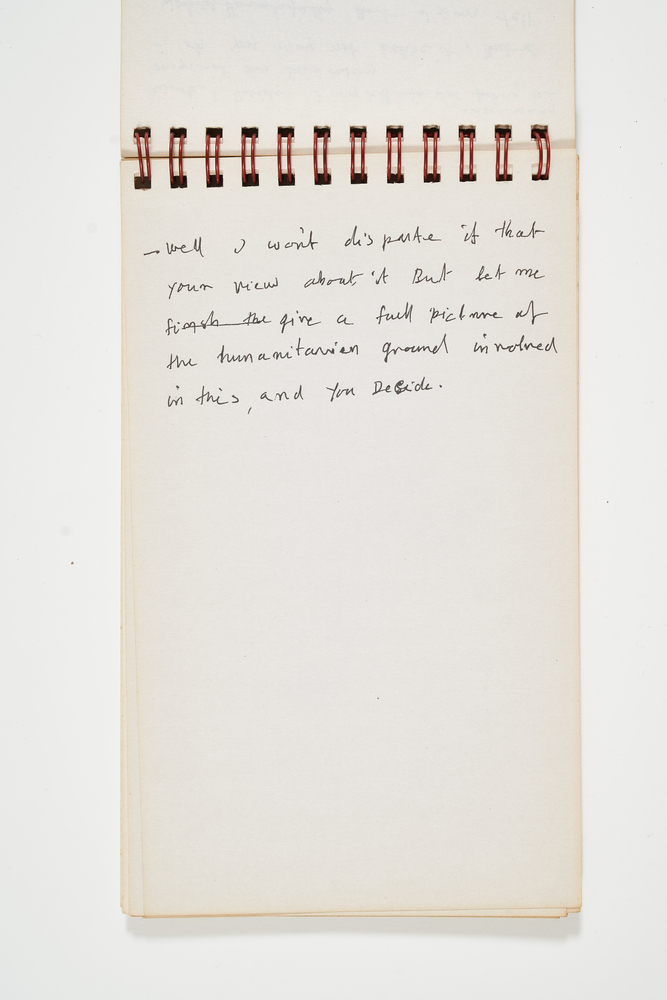 - Well I won't dispute if that
your view about it But let me
finish the give a full picture of
the humanitarian ground involved
in this, and You Decide.